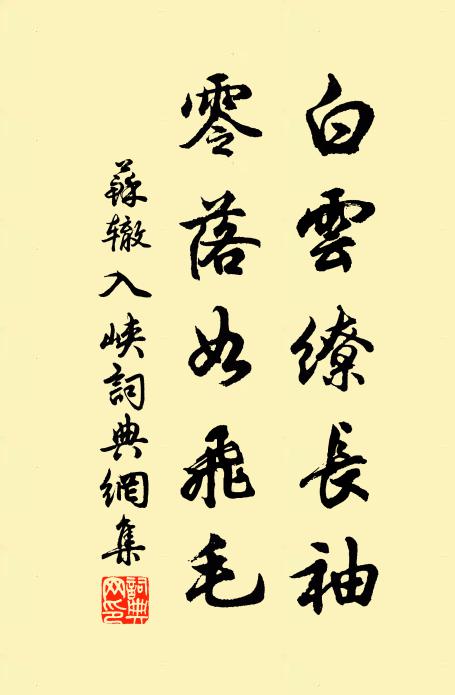 白雲繚長袖
零落如飛毛
蘇辙入峽詞典網集
詞典网印